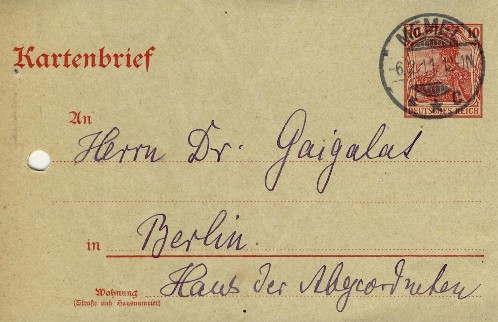 Kartenbrief
10
MEMEL
C
DEUTSCHES REICH
An
Herrn Dr. Gaigalat
in Berlin.
Wohnung
(Straße und Hausnummer)
Haus der Abgeordneten